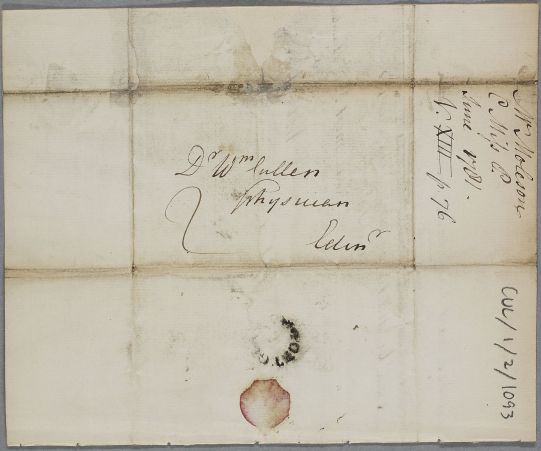 Dr. Wm Cullen
Physman
Edinr
2
Mr Moleson
C Miss P
June 1781.
V. XIII - p 76
CUL/1/2/1093